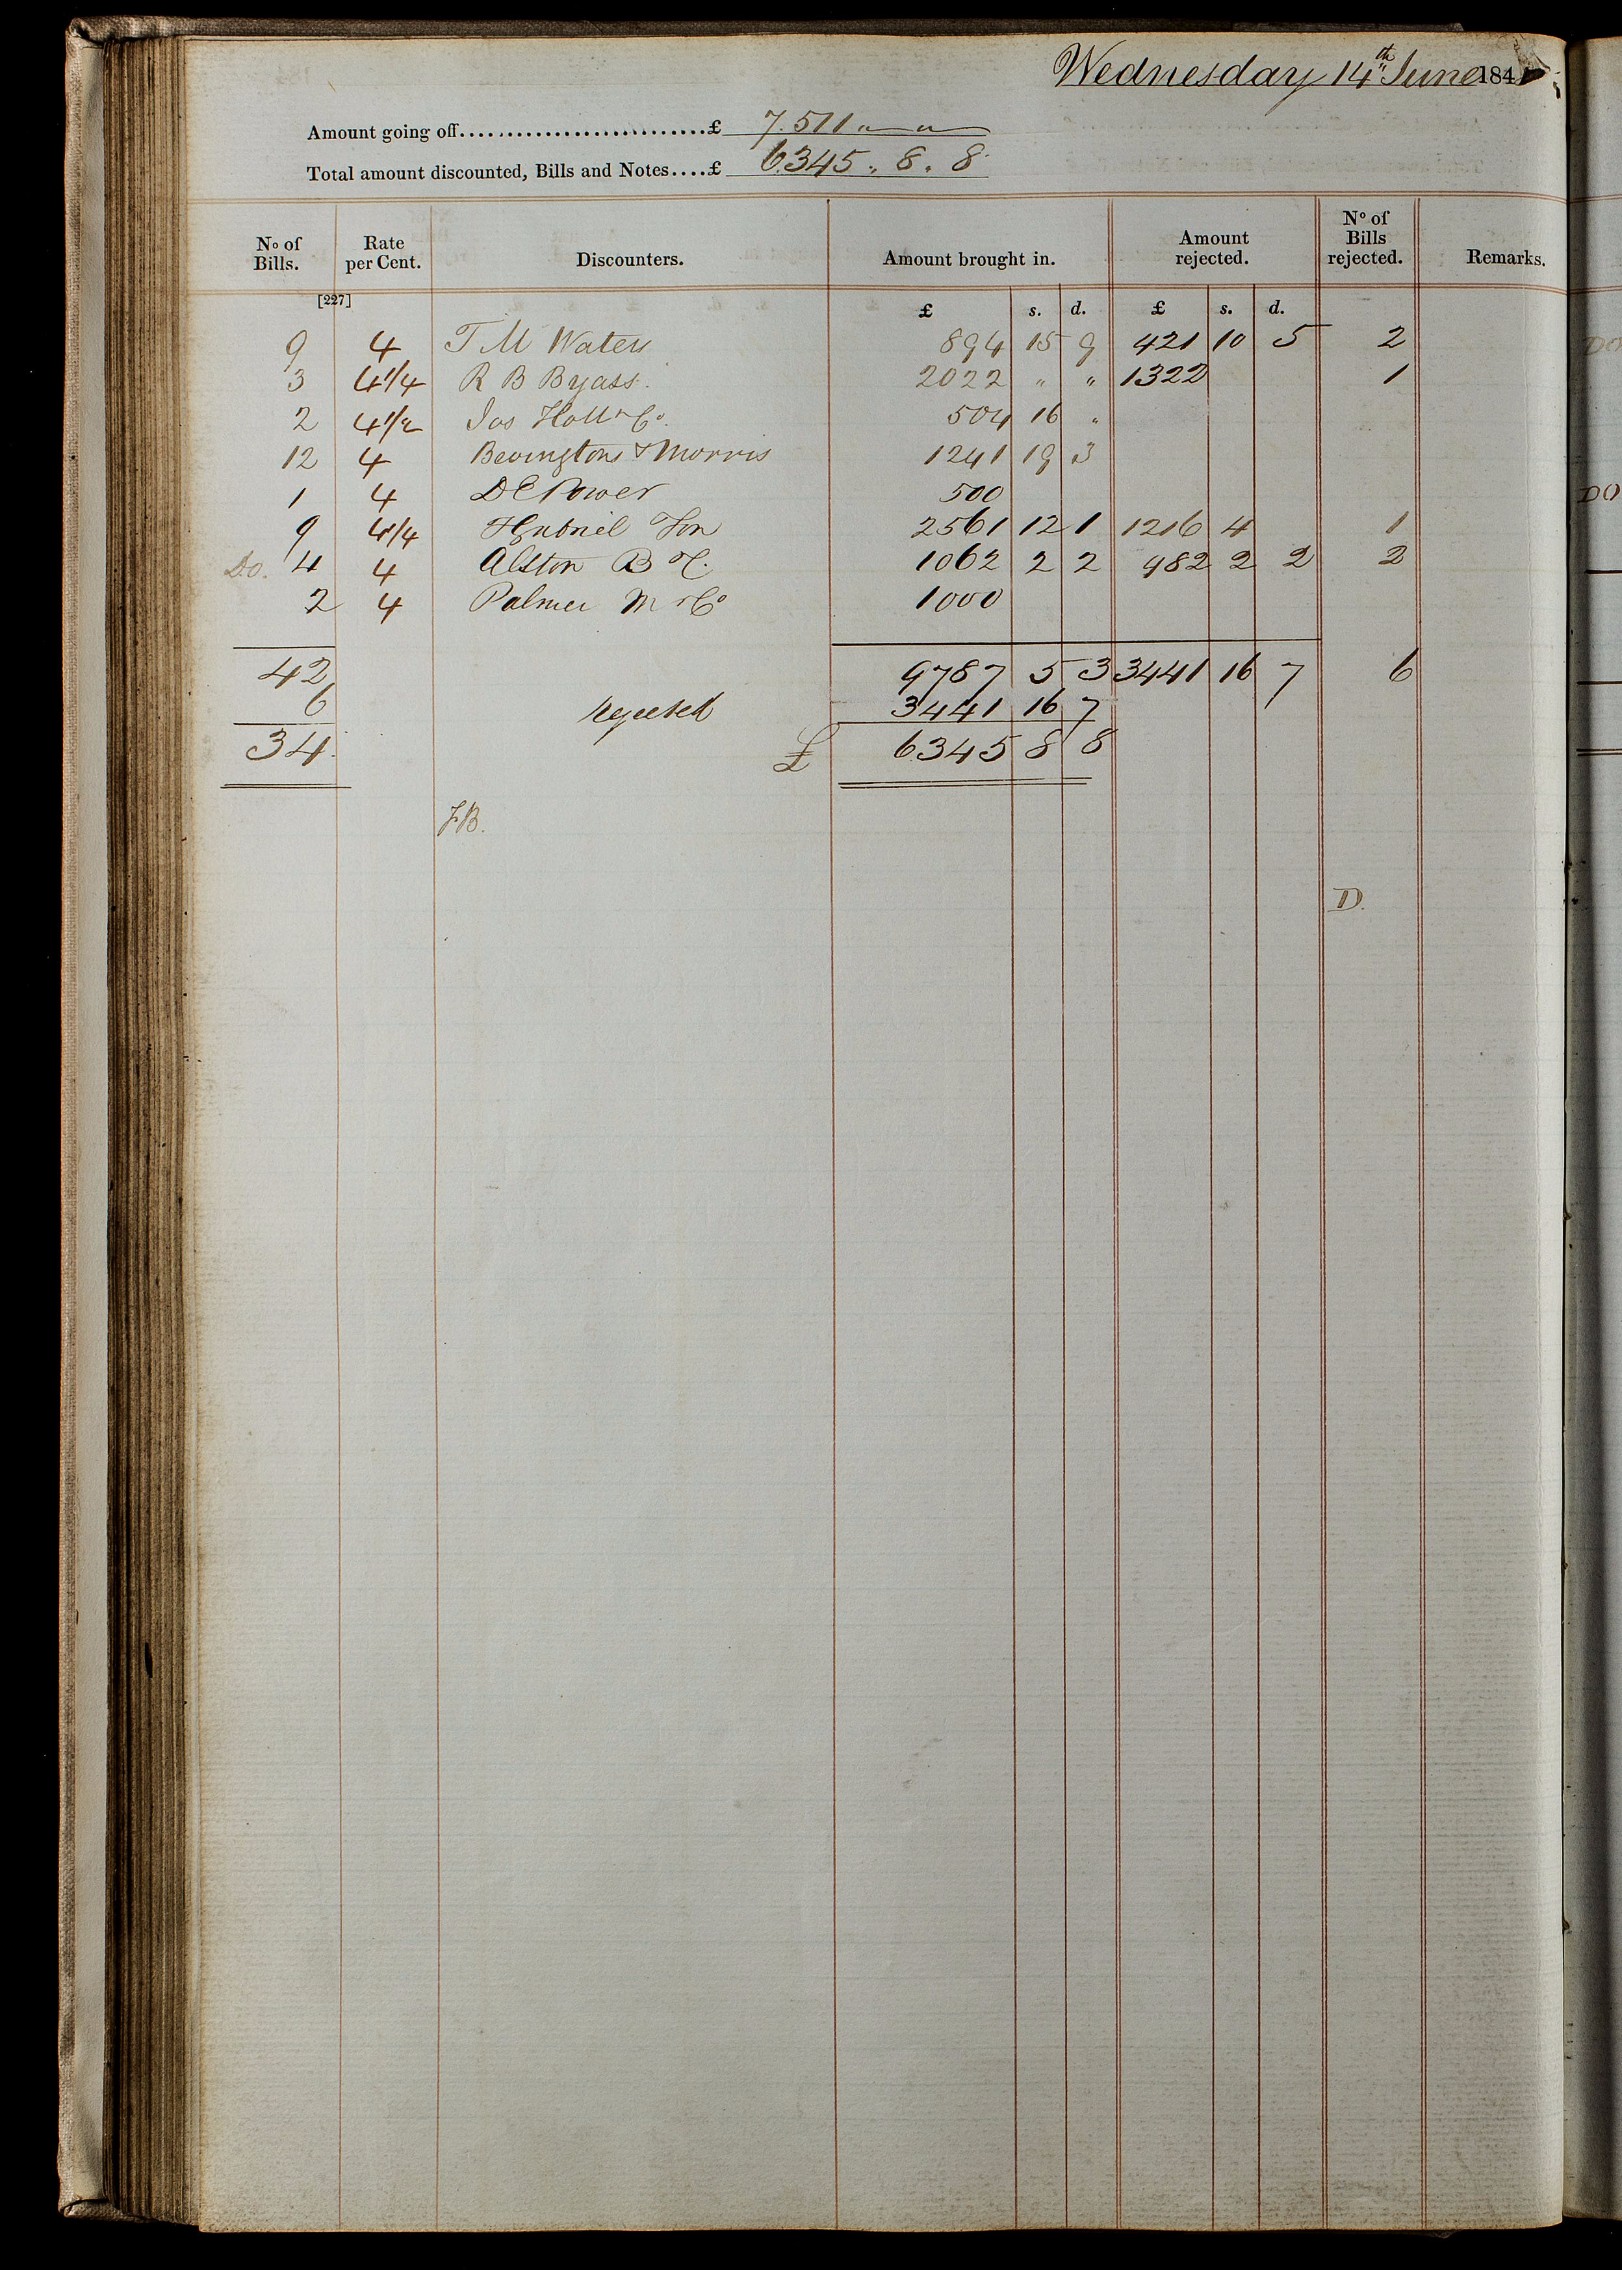 Wednesday 14th June 184
Amount going off..........................£ 7.511 " "
Total amount discounted, Bills and Notes....£ 6345 .. 8 . 8
No of Bills. Rate per Cent. Discounters. Amount brought in. Amount rejected. No of Bills rejected. Remarks.
[227] £ s. d. £ s. d.
9 4 T M Waters 894 15 9 421 10 5 2
3 4 1/4 R B Byass. 2022 " " 1322 1
2 4 1/2 Jos Holl & Co. 504 16 "
12 4 Bevingtons & Morris 1241 19 3
1 4 D E Power 500
9 4 1/4 T Gabriel Son 2561 12 1 1216 4 1
Do. 4 4 Alston B & C. 1062 2 2 482 2 2 2
2 4 Palmer M & Co 1000
42 9787 5 3 3441 16 7 6
6 rejected 3441 16 7
34. £ 6345 8 8
FB.
D.
DO
DO